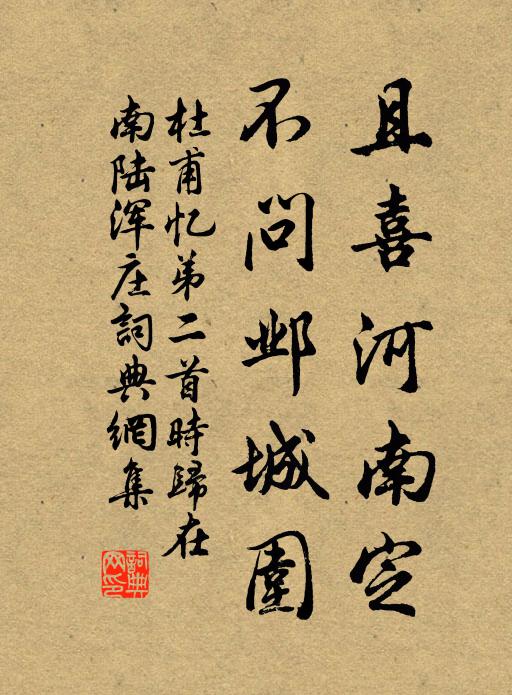 且喜河南定
不问邺城围
杜甫忆弟二首时歸在
南陆浑庄詞典網集
詞典網印